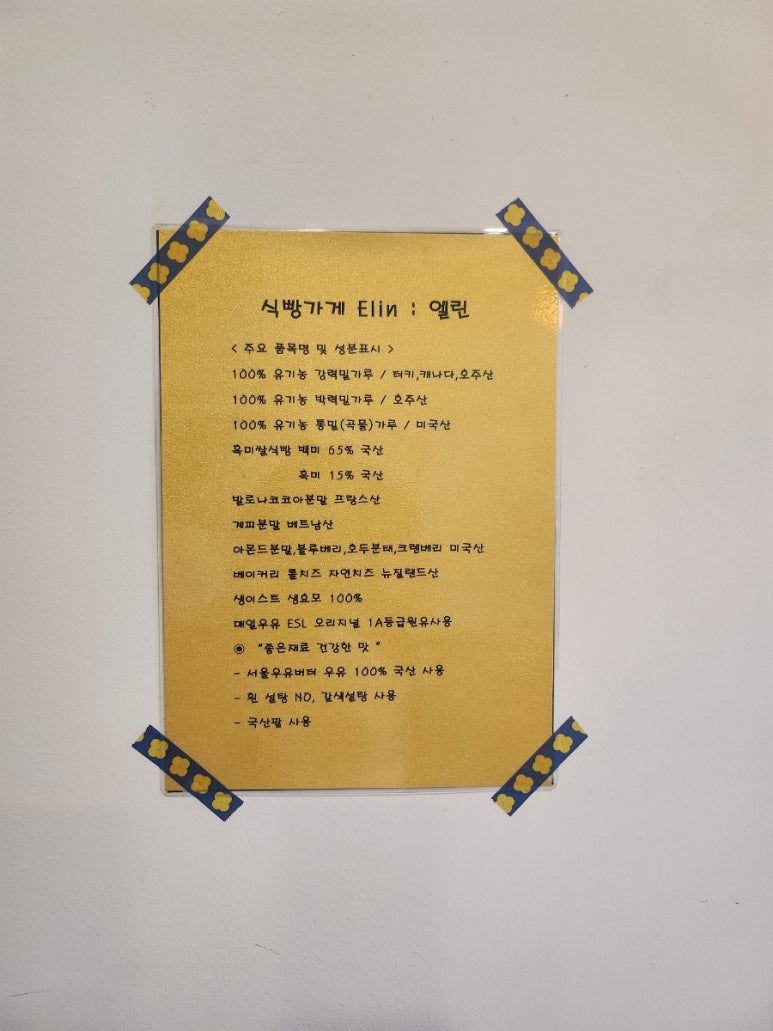 식빵가게 Elin : 엘린
< 주요 품목명 및 성분표시 >
100% 유기농 강력밀가루 / 터키,캐나다,호주산
100% 유기농 박력밀가루 / 호주산
100% 유기농 통밀(곡물)가루 / 미국산
흑미쌀식빵 백미 65% 국산
흑미 15% 국산
발로나코코아분말 프랑스산
계피분말 베트남산
아몬드분말,블루베리,호두분태,크렌베리 미국산
베이커리 롤치즈 자연치즈 뉴질랜드산
생이스트 생효모 100%
매일우유 ESL 오리지널 1A등급원유사용
◉ "좋은재료 건강한 맛 "
- 서울우유버터 우유 100% 국산 사용
- 흰 설탕 NO, 갈색설탕 사용
- 국산팥 사용